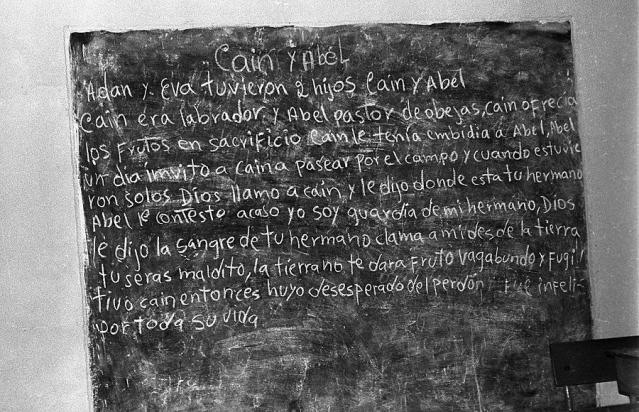 Cain y Abel
Adan y Eva tuvieron 2 hijos Cain y Abel
Cain era labrador y Abel pastor de obejas, Cain ofrecia
los frutos en sacrificio Cain le tenia embidia a Abel, Abel
un dia invito a Cain a pasear por el campo y cuando estuvie
ron solos Dios llamo a Cain y le dijo donde esta tu hermano
Abel le contesto acaso yo soy guardia de mi hermano, Dios
le dijo la sangre de tu hermano clama a mi des de la tierra
tu seras maldito, la tierra no te dara fruto vagabundo y fugi
tivo Cain entonces huyo desesperado del perdón fue infeli
por toda su vida